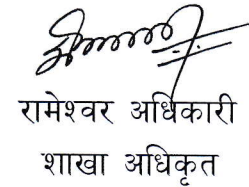 रामेश्वर अधिकारी
शाखा अधिकृत